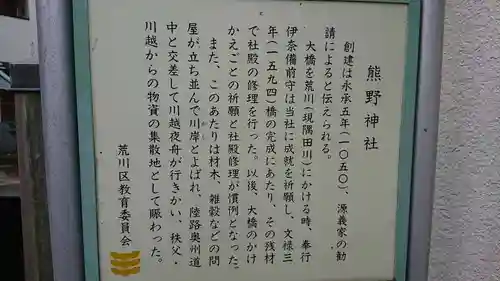 熊野神社
創建は永承五年(一〇五〇)、源義家の勧
請によると伝えられる。
大橋を荒川(現隅田川)にかける時、奉行
伊奈備前守は当社に成就を祈願し、文禄三
年(一五九四)橋の完成にあたり、その残材
で社殿の修理を行った。以後、大橋のかけ
かえごとの祈願と社殿修理が慣例となった。
また、このあたりは材木、雑穀などの問
屋が立ち並んで川岸とよばれ、陸路奥州道
中と交差して川越夜舟が行きかい、秩父・
川越からの物資の集散地として賑わった。
荒川区教育委員会